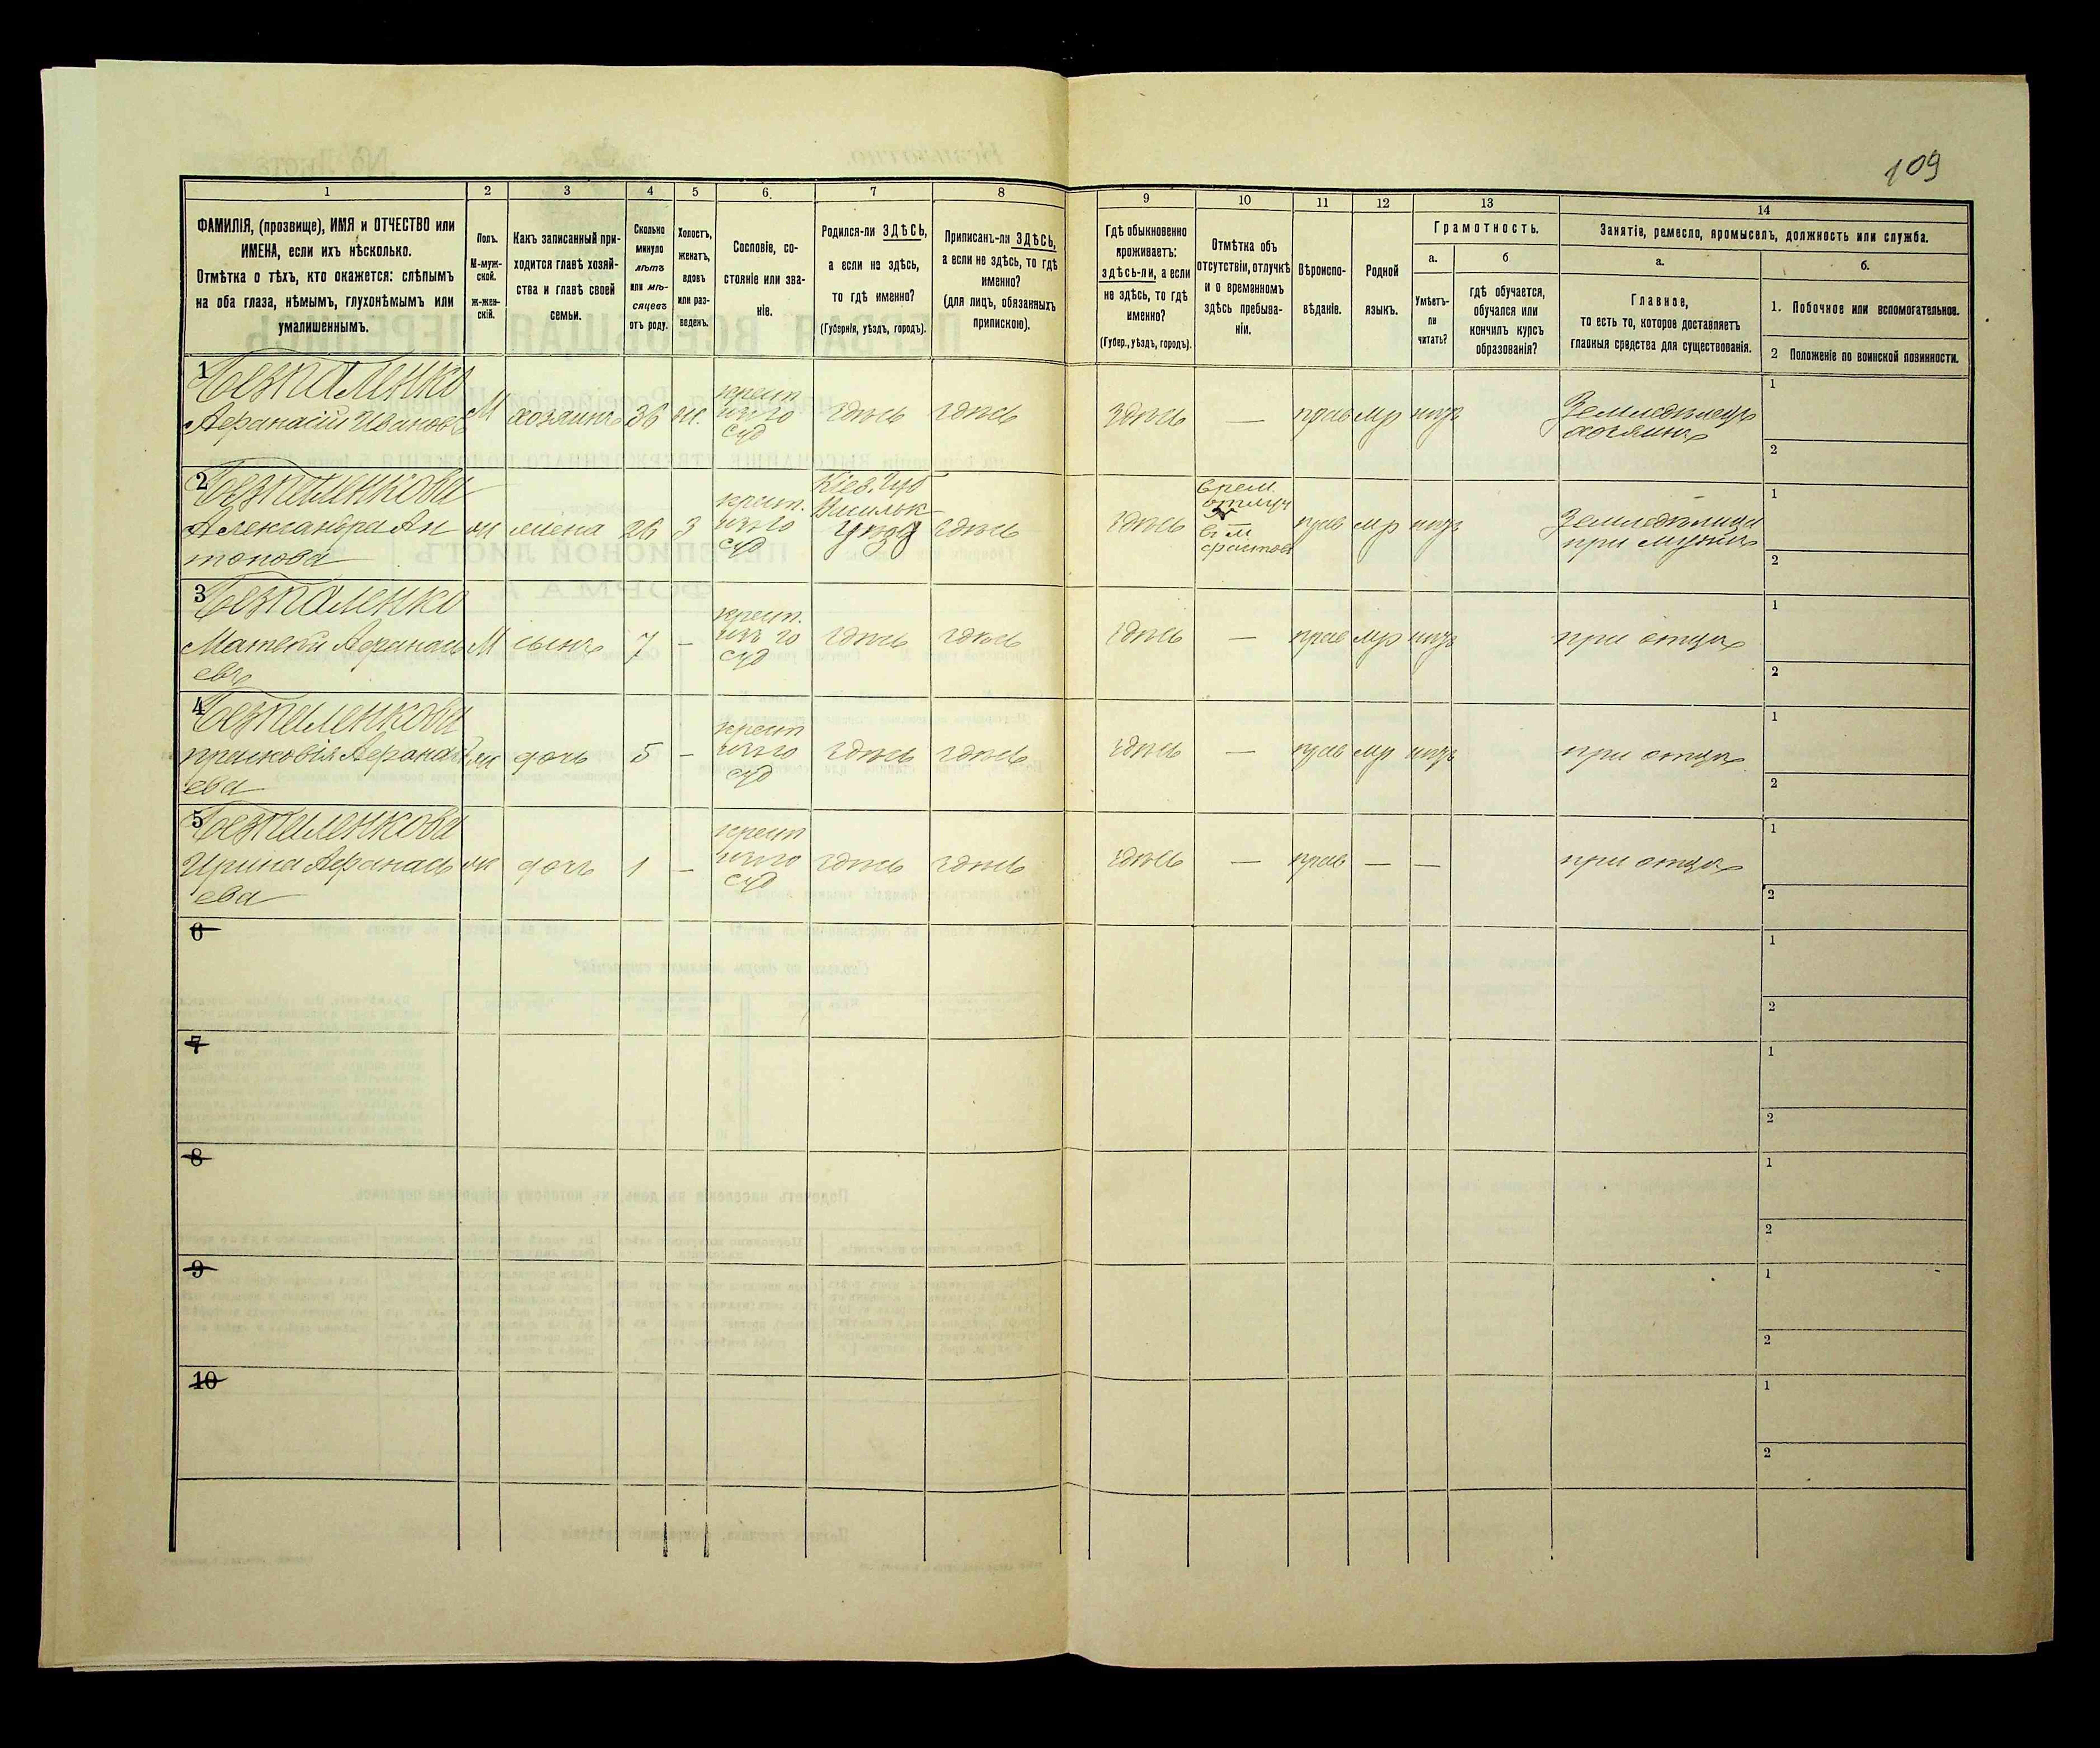 109
1 2 3 4 5 6. 7 8 9 10 11 12 13 14
ФАМИЛІЯ, (прозвище), ИМЯ и ОТЧЕСТВО или
ИМЕНА, если ихъ нѣсколько.
Отмѣтка о тѣхъ, кто окажется: слѣпымъ
на оба глаза, нѣмымъ, глухонѣмымъ или
умалишеннымъ.
Полъ.
М-муж-
ской.
Ж-жен-
скій.
Какъ записанный при-
ходится главѣ хозяй-
ства и главѣ своей
семьи.
Сколько
минуло
лѣтъ
или мѣ-
сяцевъ
отъ роду.
Холостъ,
женатъ,
вдовъ
или раз-
веденъ.
Сословіе, со-
стояніе или зва-
ніе.
Родился-ли ЗДѢСЬ,
а если не здѣсь,
то гдѣ именно?
(Губернія, уѣздъ, городъ).
Приписанъ-ли ЗДѢСЬ,
а если не здѣсь, то гдѣ
именно?
(для лицъ, обязанныхъ
припискою).
Гдѣ обыкновенно
проживаетъ:
здѣсь-ли, а если
не здѣсь, то гдѣ
именно?
(Губер., уѣздъ, городъ).
Отмѣтка объ
отсутствіи, отлучкѣ
и о временномъ
здѣсь пребыва-
ніи.
Вѣроиспо-
вѣданіе.
Родной
языкъ.
Грамотность.
а.
Умѣетъ-
ли
читать?
б
гдѣ обучается,
обучался или
кончилъ курсъ
образованія?
Занятіе, ремесло, промыселъ, должность или служба.
а.
Главное,
то есть то, которое доставляетъ
главныя средства для существованія.
б.
1. Побочное или вспомогательное.
2 Положеніе по воинской повинности.
1
Безпаленко
Афанасій Ивановъ
М хозяинъ 36 ж.
крест
изъ го
суд
здѣсь здѣсь здѣсь — прав мр нѣтъ
Земледѣлецъ
хозяинъ
1
2
2
Безпаленкова
Александра Ан
тонова
ж жена 26 з
крест.
изъ го
суд
Кіев. Губ
Василък
уѣзд
здѣсь здѣсь
врем
отлуч
въ м
прав мр нѣтъ
Земледѣлица
при мужѣ
1
2
3
Безпаленко
Матвѣй Афанась
евъ
М сынъ 7 —
крест.
изъ го
суд
здѣсь здѣсь здѣсь — прав мр нѣтъ при отцѣ
1
2
4
Безпаленкова
Прасковія Афанась
ева
ж дочь 5 —
крест
изъ го
суд
здѣсь здѣсь здѣсь — прав мр нѣтъ при отцѣ
1
2
5
Безпаленкова
Ирина Афанась
ева
ж дочь 1 —
крест
изъ го
суд
здѣсь здѣсь здѣсь — прав — — при отцѣ
1
2
6
1
2
7
1
2
8
1
2
9
1
2
10
1
2